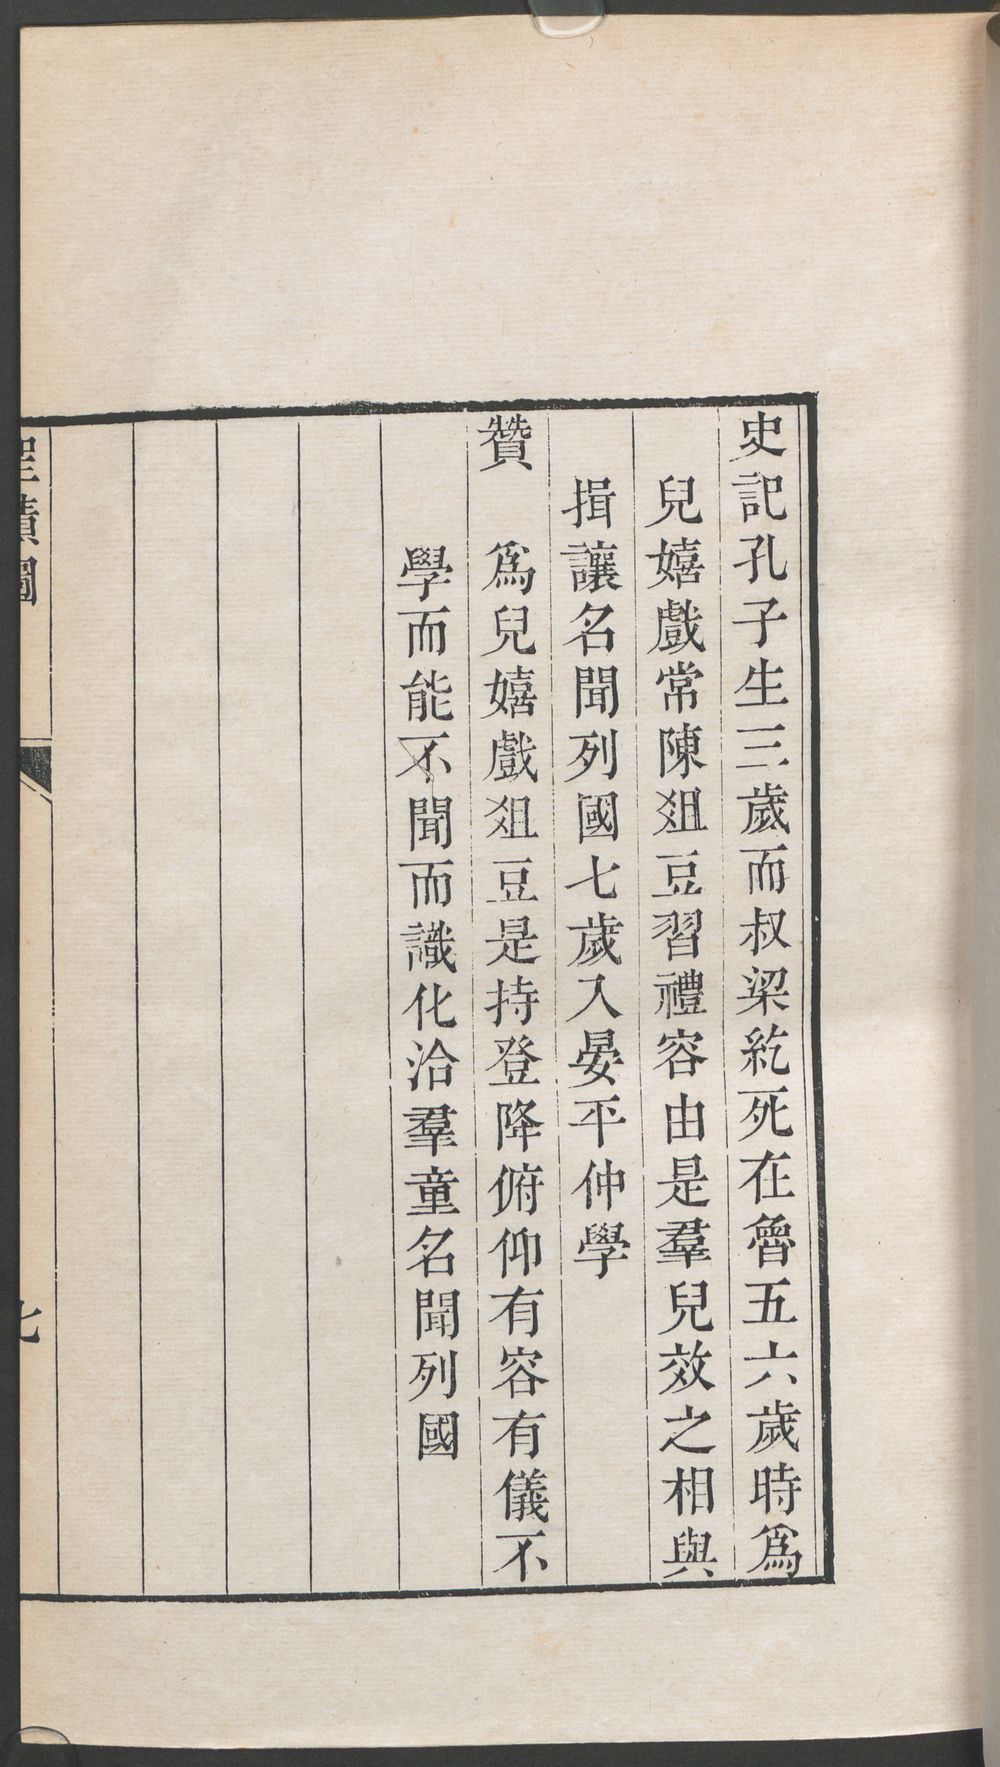 史記孔子生三歲而叔梁紇死在魯五六歲時爲
兒嬉戲常陳俎豆習禮容由是羣兒效之相與
揖讓名聞列國七歲入晏平仲學
贊　爲兒嬉戲俎豆是持登降俯仰有容有儀不
學而能不聞而識化洽羣童名聞列國
聖蹟圖
七